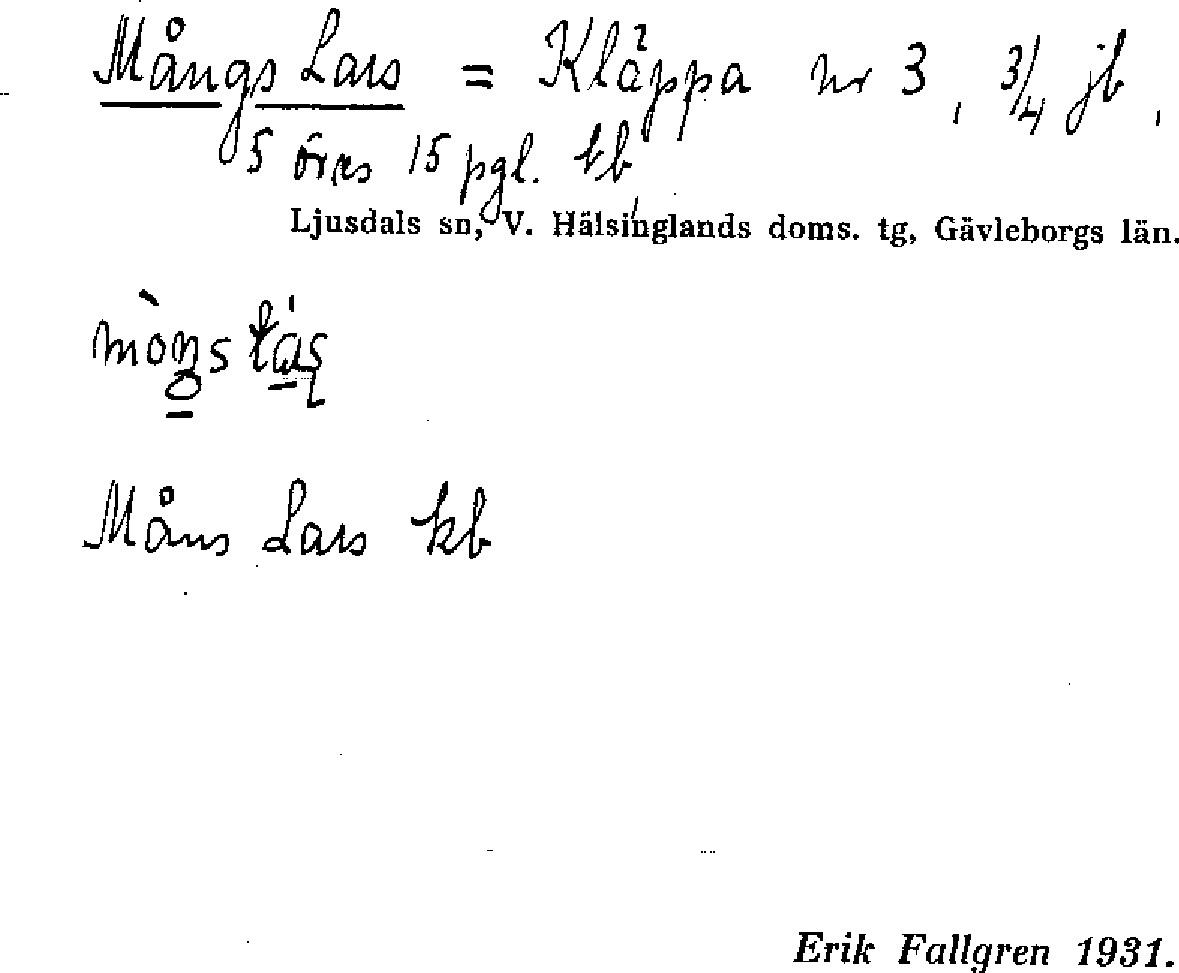 Mångs Lars = Kläppa nr 3, 3/4 jb,
5 öres 15 pgl. kb,
Ljusdals sn, V. Hälsinglands doms. tg, Gävleborgs län.
Måns Lars kb
Erik Fallgren 1931.